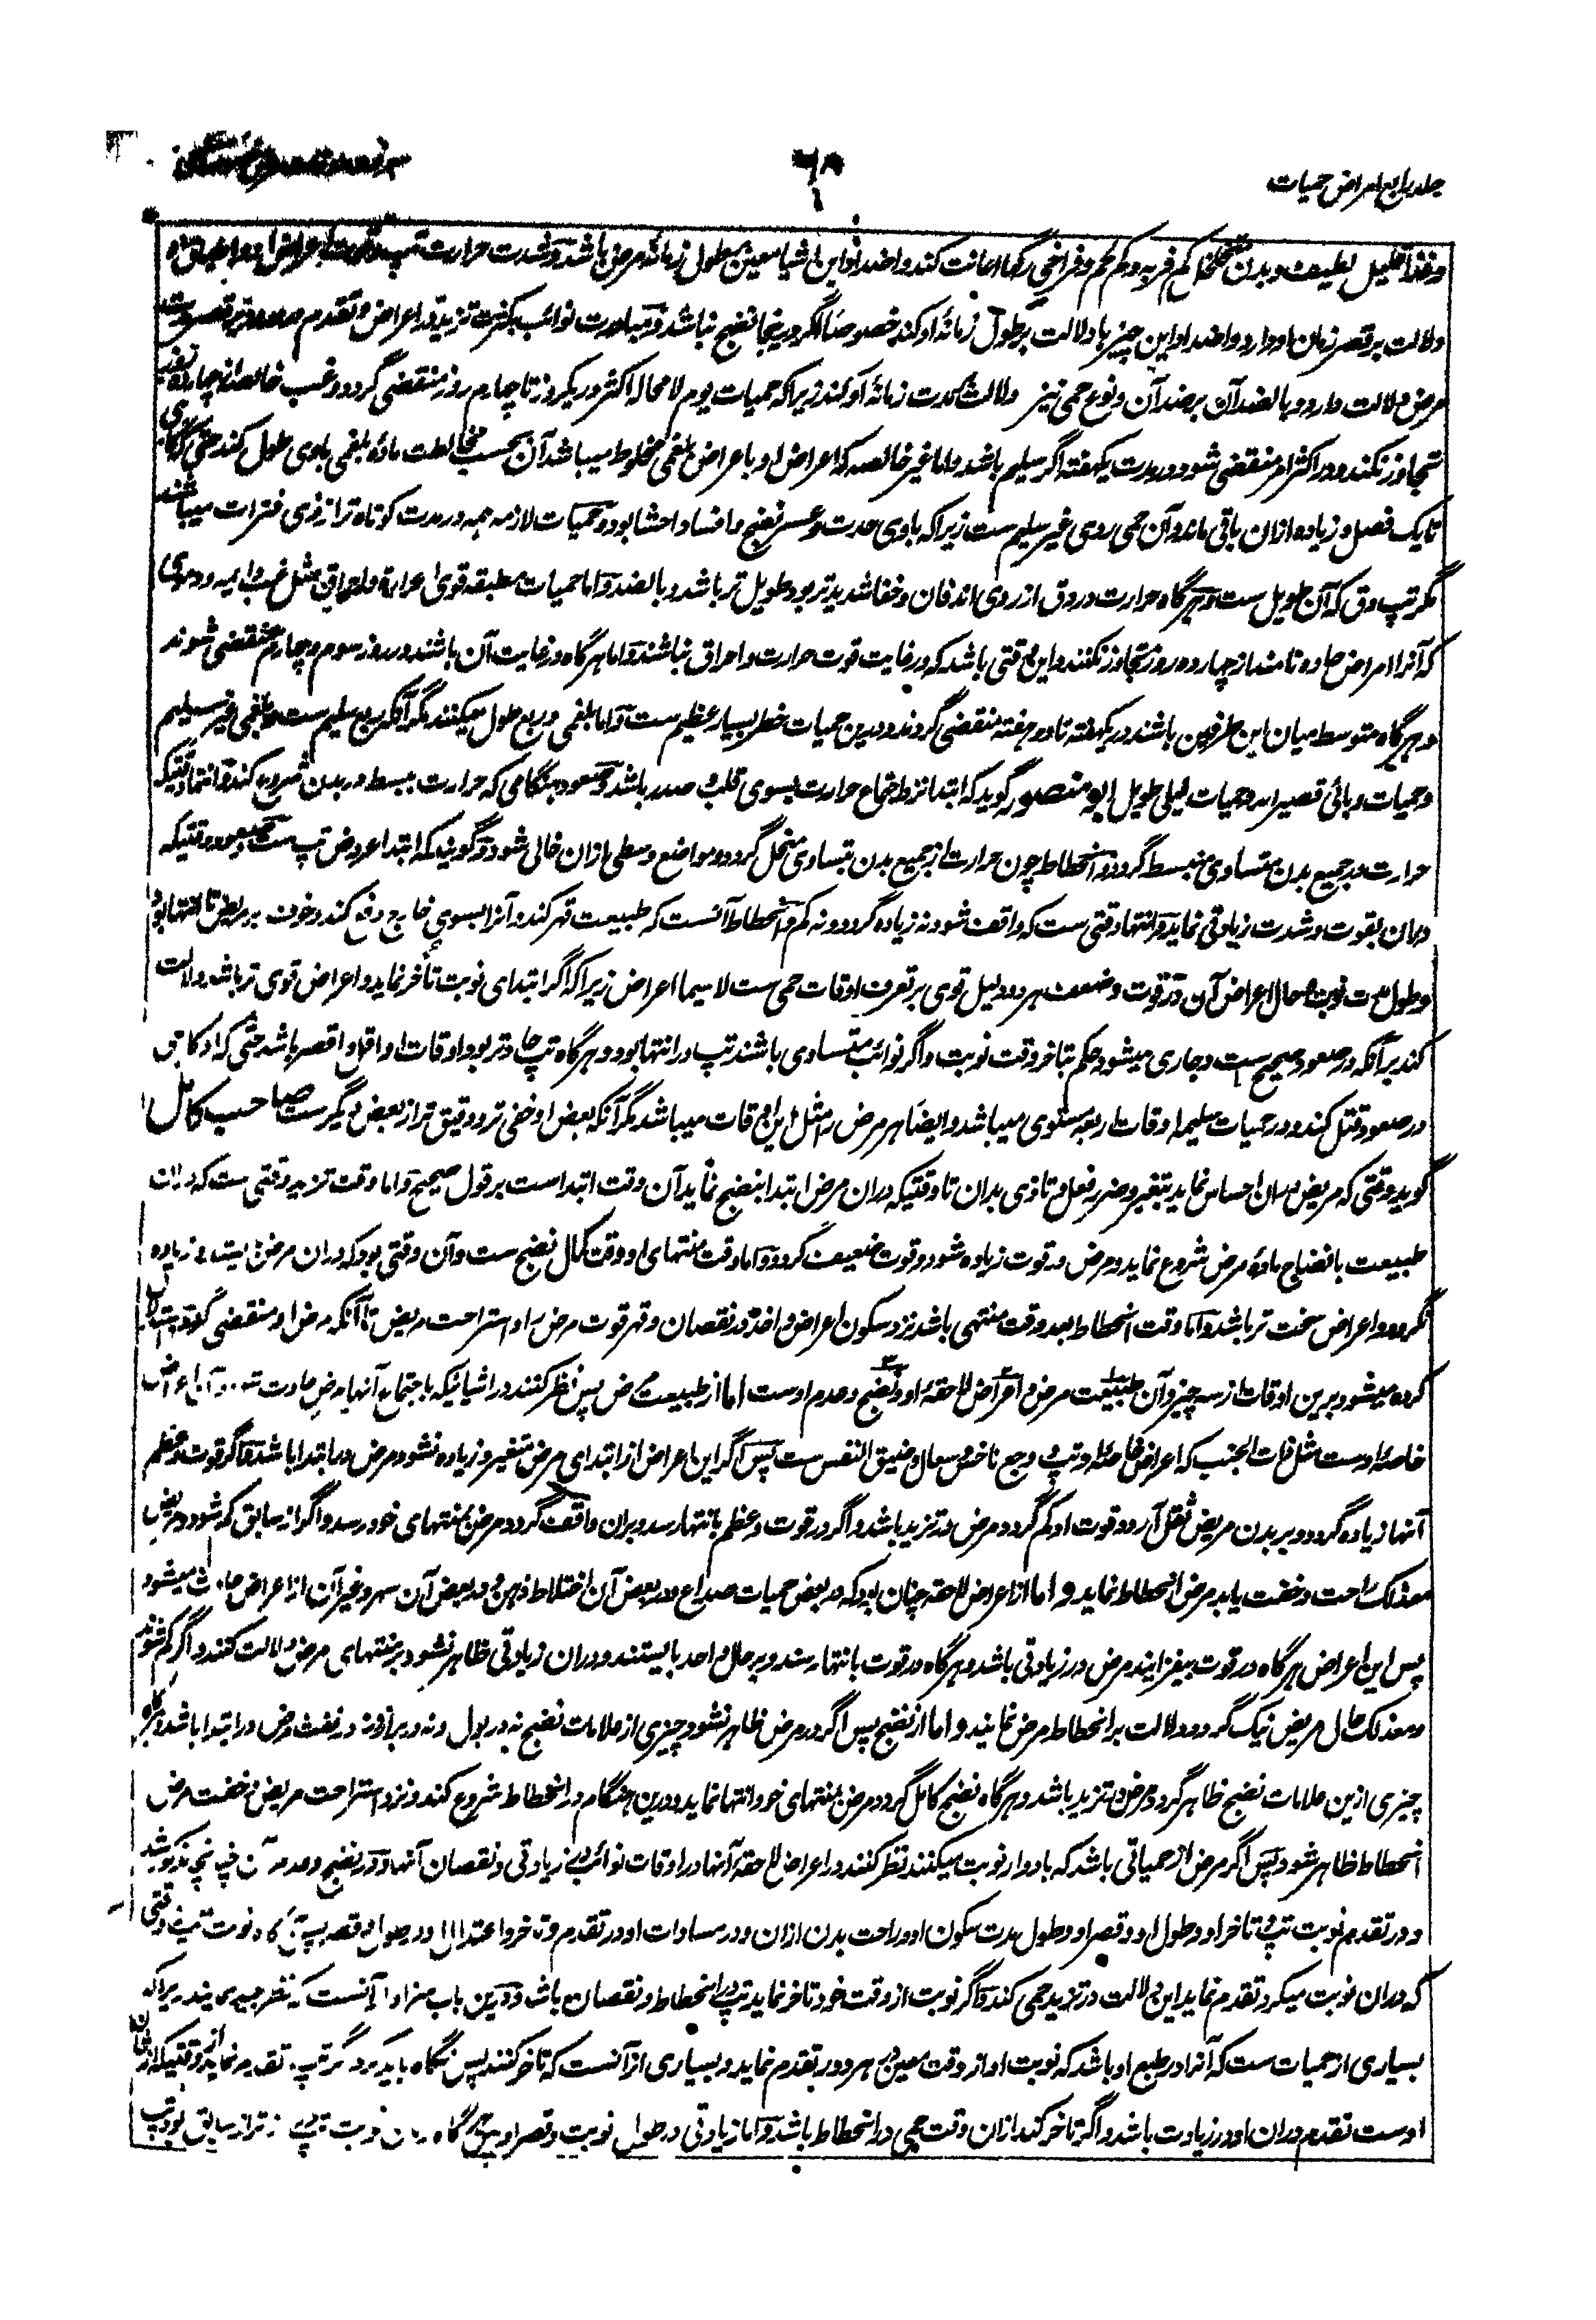 جلد رابع امراض حمیات
وغذا قلیل لطیف و بدن متخلخل کم فربه و کم لحم و فراخی رگها اعانت کند و اضداد این اشیا معین بطول زمانه مرض باشد و شدت حرارت تپ
دلالت بر قصر زمان او دارد و اضداد این چیزها دلالت بر طول زمانه او کند خصوصاً اگر درینجا نضج نباشد و مبادرت نوائب بکثرت تزید و اعراض و تقدم
مرض دلالت دارد و بالضد آن بر ضد آن و نوع حمی نیز دلالت بمدت زمانه او کند زیرا که حمیات یوم لا محاله اکثر در یکروز تا چهارم روز منقضی گردد و غب خالصه از چهارده
تجاوز نکند و در اکثر امر منقضی شود در مدت یکهفته اگر سلیم باشد و اما غیر خالصه که اعراض او با عراض بلغمی مخلوط میباشد آن بحسب مخالطت ماده بلغمی باوی طول کند حتی که
تا یک فصل و زیاده ازان باقی ماند و آن حمی ردی غیر سلیم ست زیرا که باوی مدت و عسر نضج و افساد احشا بود و حمیات لازمه همه در مدت کوتاه تر از ذی فترات میباشند
مگر تپ دق که آن طویل ست و هرگاه حرارت در دق از روی اندفان و خفا شدیدتر بود طویل تر باشد و بالضد و اما حمیات مطبقه قوی الحرارة و احراق مثل غب دائمیه و دموی
که آنرا امراض حاده نامند از چهارده روز تجاوز نکنند و این وقتی باشد که در غایت قوت حرارت و احراق نباشند و اما هرگاه در غایت آن باشند در روز سوم و چهارم منقضی شوند
و هرگاه متوسط میان این طرفین باشند در یکهفته تا دو هفته منقضی گردند و درین حمیات خطر بسیار عظیم ست و اما بلغمی و ربع طول میکنند مگر آنکه ربع سلیم ست و بلغمی غیر سلیم
و حمیات وبائی قصیر اند و حمیات لیلی طویل ابو منصور گوید که ابتدا نزد اجتماع حرارت بسوی قلب و صدر باشد و صعود هنگامی که حرارت مبسط در بدن شروع کند و انتها وقتیکه
حرارت در جمیع بدن متساوی منبسط گردد و انحطاط چون حرارت از جمیع بدن بتساوی منحل گردد و مواضع وسطی ازان خالی شود و گویند که ابتدا عروض تپ ست و صعود وقتیکه
دران بقوت و شدت زیادتی نماید و انتها وقتی ست که واقف شود نه زیاده گردد و نه کم و انحطاط آنست که طبیعت قهر کند و آنرا بسوی خارج دفع کند و خوف بر مریض تا انتها بود
و طول مدت نوبت و حال اعراض آن در قوت و ضعف هر دو دلیل قوی بر تعرف اوقات حمی ست لا سیما اعراض زیرا که اگر ابتدای نوبت تأخر نماید و اعراض قوی تر باشد دلالت
کند بر آنکه در صعود صحیح ست و جاری میشود حکم بتاخر وقت نوبت و اگر نوائب متساوی باشند تپ در انتها بود و هرگاه تپ حادتر بود اوقات او اقل و اقصر باشد حتی که او گاهی
در صعود قتل کند و در حمیات سلیمه اوقات اربعه مستوی میباشد و ایضاً هر مرض را مثل این اوقات میباشد مگر آنکه بعض او خفی تر و دقیق تر از بعض دیگر ست صاحب کامل
گوید وقتی که مریض دران احساس نماید بتغیر و ضرر فعل و تاذی بدان تا وقتیکه دران مرض ابتدا بنضج نماید آن وقت ابتداست بر قول صحیح و اما وقت تزید وقتی ست که دران
طبیعت بانضاج ماده مرض شروع نماید و مرض در قوت زیاده شود و قوت ضعیف گردد و اما وقت منتهای او وقت کمال نضج ست و آن وقتی بود که دران مرض بایستد و زیاده
نگردد و اعراض سخت تر باشد و اما وقت انحطاط بعد وقت منتهی باشد نزد سکون اعراض و اخذ در نقصان و قهر قوت مرض را و استراحت مریض تا آنکه مرض او منقضی گردد و استدلال
کرده میشود برین اوقات از سه چیز و آن طبیعت مرض و اعراض لاحقه او و نضج و عدم اوست اما از طبیعت مرض پس نظر کنند در اشیائیکه باجتماع آنها مرض حادث شود و آن اعراض
خاصه اوست مثل ذات الجنب که اعراض خاصه او تپ و وجع ناخس و سعال و ضیق النفس ست پس اگر این اعراض از ابتدای مرض متغیر و زیاده نشود مرض در ابتدا باشد و اگر قوت و عظم
آنها زیاده گردد و بر بدن مریض ثقل آرد و قوت او کم گردد مرض در تزید باشد و اگر در قوت و عظم بانتها رسد و بران واقف گردد مرض بمنتهای خود رسد و اگر از سابق کم شود و مریض
معذلک راحت و خفت یابد مرض انحطاط نماید و اما از اعراض لاحقه چنان بود که در بعض حمیات صداع و در بعض آن اختلاط ذهن و در بعض آن سهر و غیر آن از اعراض حادث میشود
پس این اعراض هرگاه در قوت بیفزایند مرض در زیادتی باشد و هرگاه در قوت بانتها رسند و بر حال واحد بایستند و دران زیادتی ظاهر نشود بر منتهای مرض دلالت کنند و اگر کم شوند
و معذلک حال مریض نیک گردد دلالت بر انحطاط مرض نمایند و اما از نضج پس اگر در مرض ظاهر نشود چیزی از علامات نضج نه در بول و نه در براز و نه در نفث مرض در ابتدا باشد و هرگاه
چیزی ازین علامات نضج ظاهر گردد مرض در تزید باشد و هرگاه نضج کامل گردد مرض بمنتهای خود انتها نماید و درین هنگام در انحطاط شروع کند و نزد استراحت مریض و خفت مرض
انحطاط ظاهر شود پس اگر مرض از حمیاتی باشد که بادوار نوبت میکنند نظر کنند در اعراض لاحقه آنها در اوقات نوائب در زیادتی و نقصان آنها و در نضج و عدم آن چنانچه مذکور شد
و در تقدم نوبت تپ و تاخر او و طول او و قصر او و طول مدت سکون او و راحت بدن ازان و در مساوات او در تقدم و تاخر و اعتدال در طول و قصر پس هرگاه نوبت تپ وقتی
که دران نوبت میکرد تقدم نماید این دلالت در تزید حمی کند و اگر نوبت از وقت خود تاخر نماید تپ در انحطاط و نقصان باشد و درین باب سزاوار آنست که نظر
بسیاری از حمیات ست که آنرا در طبع او باشد که نوبت او از وقت معین در هر دور تقدم نماید و بسیاری از آنست که تاخر کنند پس نگاه باید کرد اگر تپ تقدم نماید
اوست تقدم دران او در زیادت باشد و اگر تاخر کند ازان وقت حمی در انحطاط باشد و اما زیادتی در طول نوبت و قصر او پس هرگاه زمان نوبت تپ از سابق بود تپ